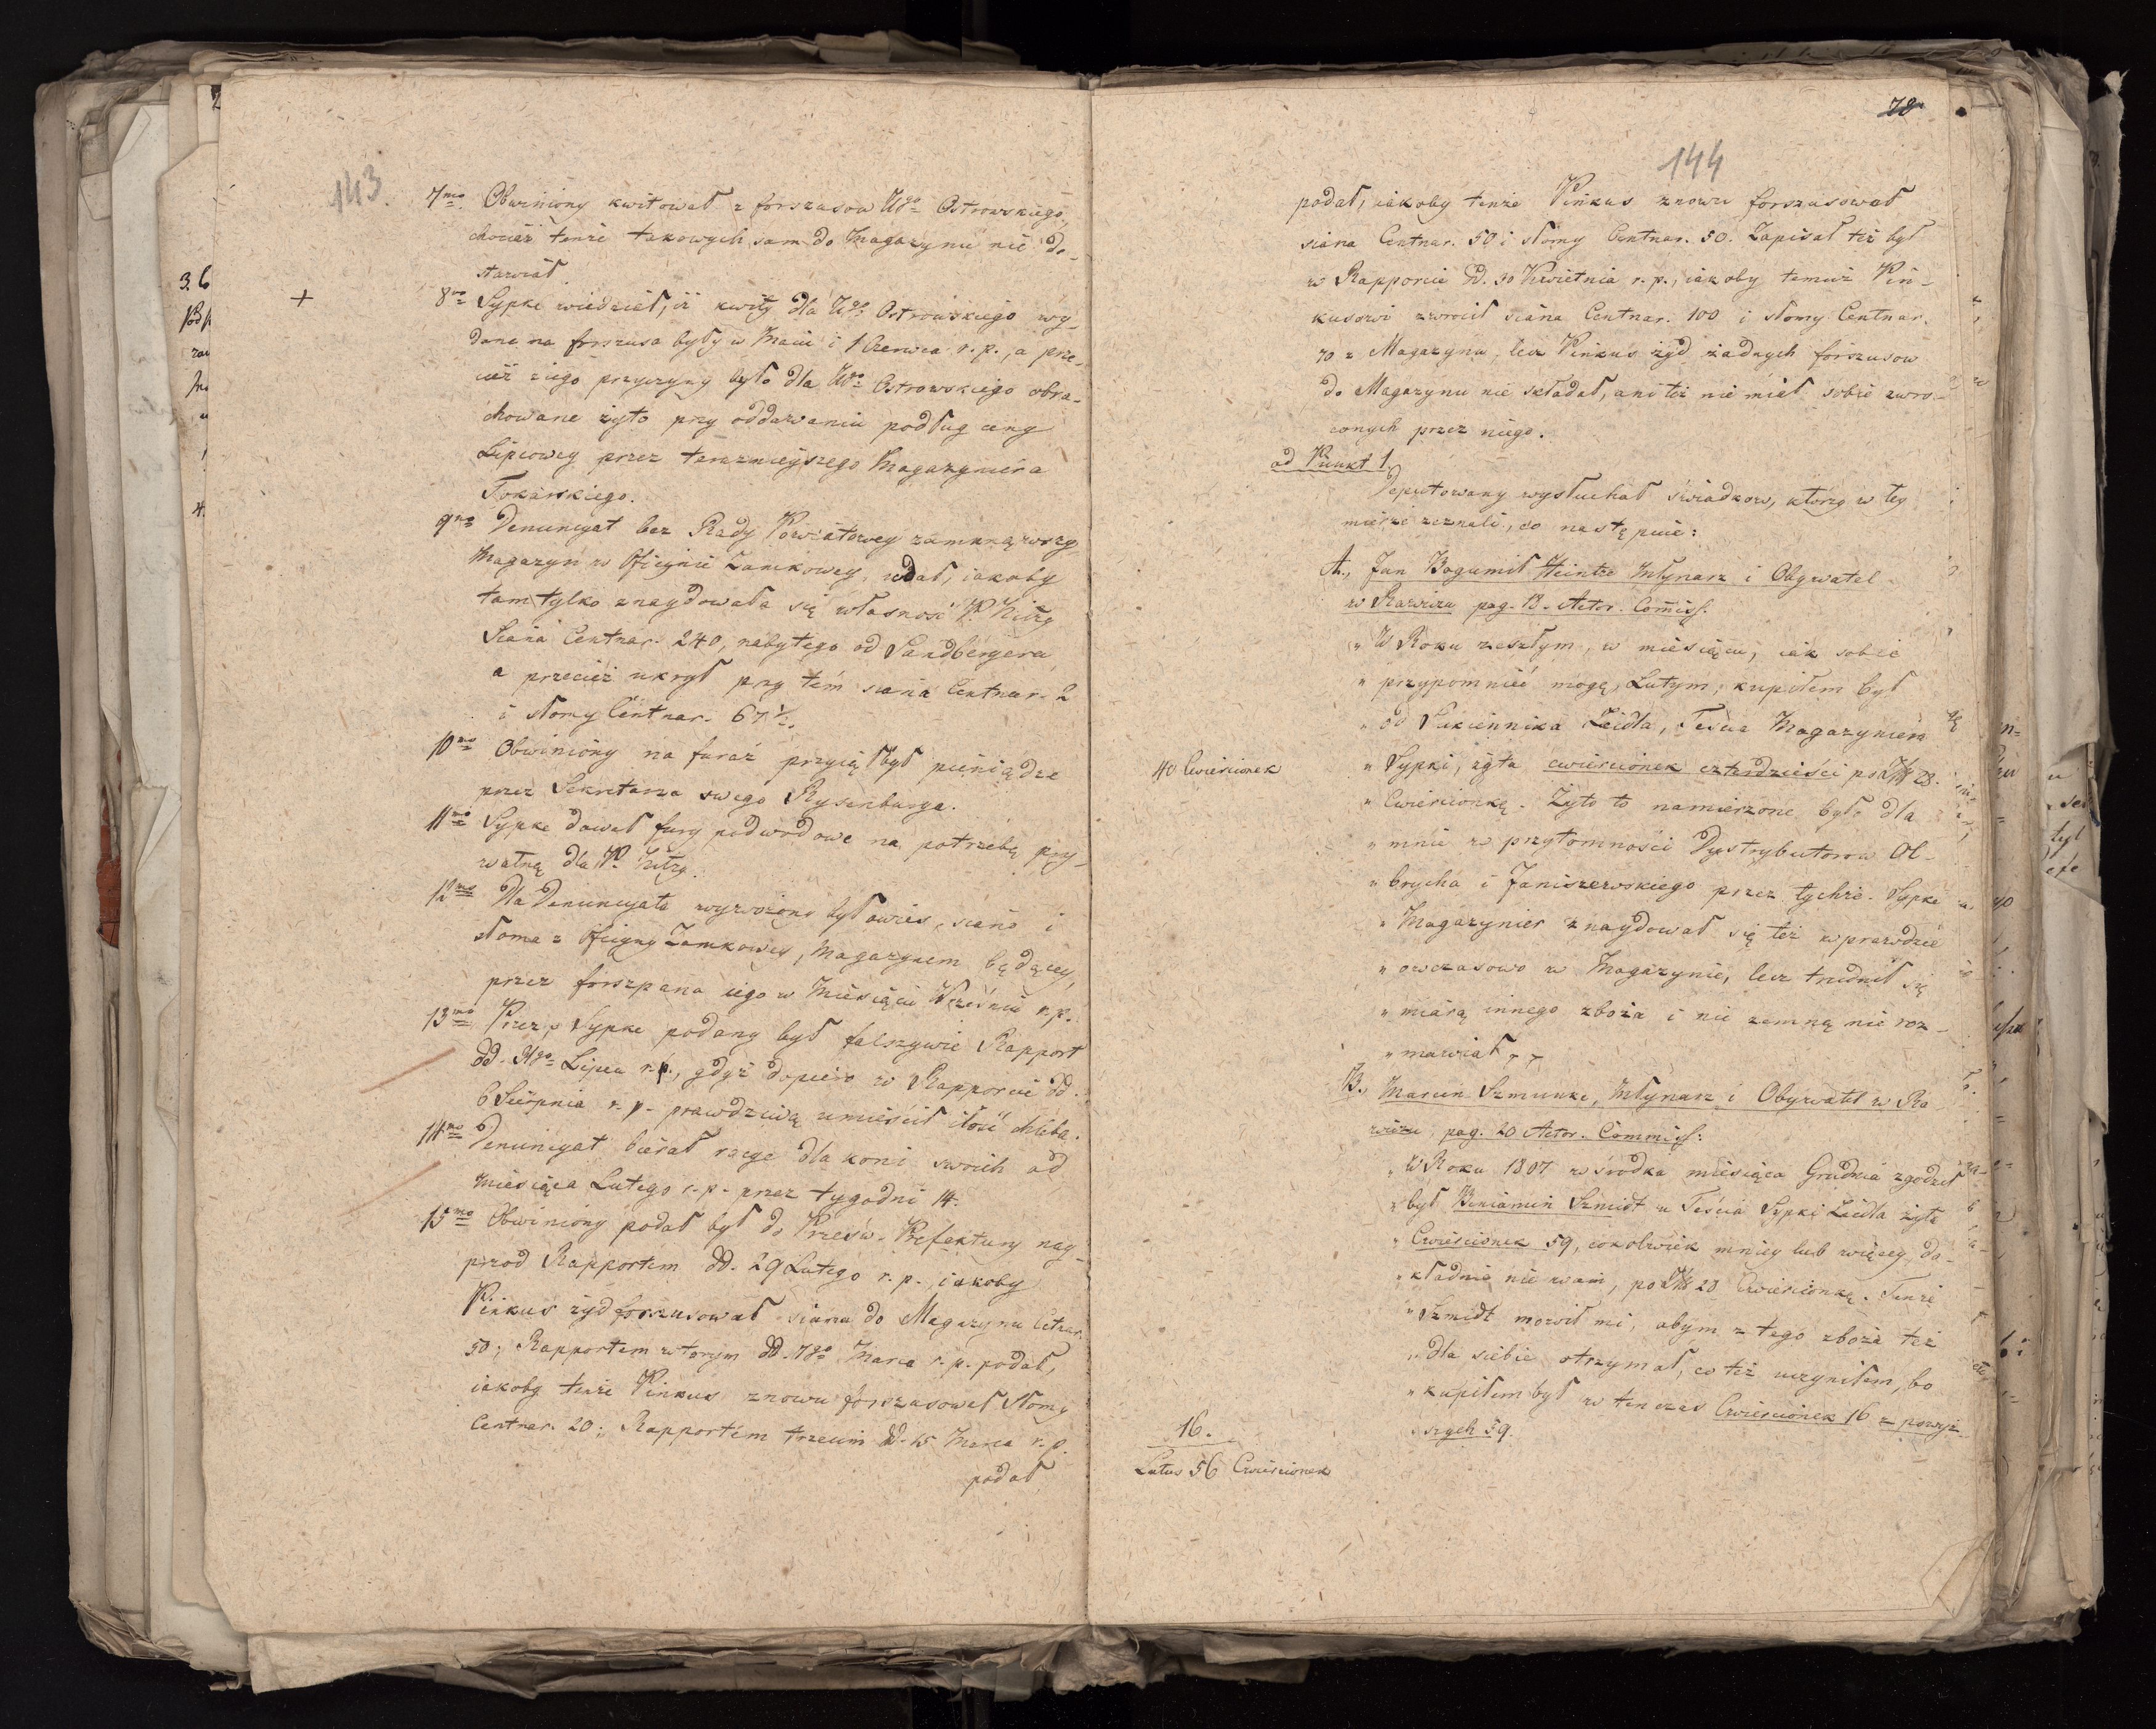 143.
7mo Obwiniony kwitował z forszusow Wgo Ostrowskiego,
chociéż tenże takowych sam do Magazynu nié do-
stawiał
+
8vo Sypke wiedział, iż kwity dla Wgo Ostrowskiego wy-
dane na forszusa były w Maiu i 1 Czerwca r. p., a prze-
cież z iego przyczyny było dla Wgo Ostrowskiego obra-
chowane żyto przy oddawaniu podług ceny
Lipcowey przez teraznieyszego Magazyniera
Tokarskiego.
9no Denuncyat bez Rady Powiatowey zamknąwszy
Magazyn w Oficynie Zamkowey, udał, iakoby
tam tylko znaydowała się własność P. Kitzy
Siana Centnar. 240, nabytego od Sandbergera,
a przecież ukrył przy tém siana Centnar. 2
i słomy Centnar. 67 1/2.
10mo Obwiniony na furaż przyiął był pieniądze
przez Sekretarza swego Rysenburga.
11mo Sypke dawał fury podwodowe na potrzebę pry-
watną dla P. Kitzy.
12mo Dla Denuncyata wywożony był owies, siano i
słoma z Oficyny Zamkowey, Magazynem będącey,
przez forszpana iego w Miesiącu Wrześniu r. p.
13mo Przez Sypke podany był falszywie Rapport
dd. Lipca r. p., gdyż dopiero w Rapporcie dd.
6 Sierpnia r. p. prawdziwą umieścił ilość chleba.
14mo Denuncyat bierał racye dla koni swoich od
Miesiąca Lutego r. p. przez tygodni 14.
15mo Obwiniony podał był do Prześw. Prefektury nay-
przod Rapportem dd. 29 Lutego r. p., iakoby
Pinkus żyd forszusował siana do Magazynu Cetnar.
50; Rapportem wtorym dd. 7go Marca r. p. podał,
iakoby tenże Pinkus znowu forszusował słomy
Centnar. 20; Rapportém trzecim dd. 15 Marca r. p.
podał
78
144
podał, iakoby tenże Pinkus znowu forszusował
siana Centnar. 50 i słomy Centnar. 50. Zapisał też był
w Rapporcie dd. 30 Kwietnia r. p., iakoby temuż Pin-
kusowi zwrócił siana Centnar. 100 i słomy Centnar.
70 z Magazynu, lecz Pinkus żyd żadnych forszusow
do Magazynu nie składał, ani też nie miał sobie zwro-
conych przez niego.
ad Punkt 1.
Deputowany wysłuchał świadkow, ktorzy w tey
mierze zeznali, co następuie:
A., Jan Bogumił Heintze Młynarz i Obywatel
w Rawiczu pag. 18. Actor. Comiss.
„ W Roku zeszłym, w miesiącu, iak sobie
„ przypomnieć mogę, Lutym, kupiłem był
„ od Sukiennika Zeidla, Teścia Magazyniera
40 Cwierciónek
„ Sypki, żyta cwierciónek czterdzieści po 28.
„ Cwierciónkę. Żyto to namierzone było dla
„ mnie w przytomności Dystrybutorow Ol-
„ brycha i Janiszewskiego przez tychże. Sypke
„ Magazynier znaydował się też wprawdzie
„ owczasowo w Magazynie, lecz trudnił się
„ miarą innego zboża i nie zemną nie roz-
„ mawiał „ „
B., Marcin Szmunke, Młynarz i Obywatel w Ra-
wiczu, pag. 20 Actor. Commiss:
„ W Roku 1807 w środku miesiąca Grudnia zgodził
„ był Beniamin Szmidt u Teścia Sypki Zeidla żyta
„ Cwierciónek 59, cokolwiek mniey lub więcey, do-
„ kładnie nie wiem, po 28 Cwierciónkę. Tenże
„ Szmidt mowił mi, abym z tego zboża też
„ dla siebie otrzymał, co też uczyniłem, bo
„ kupiłem był w tenczas Cwierciónek 16 z powyż-
„ szych 59.
16.
Latus 56 Cwierciónek